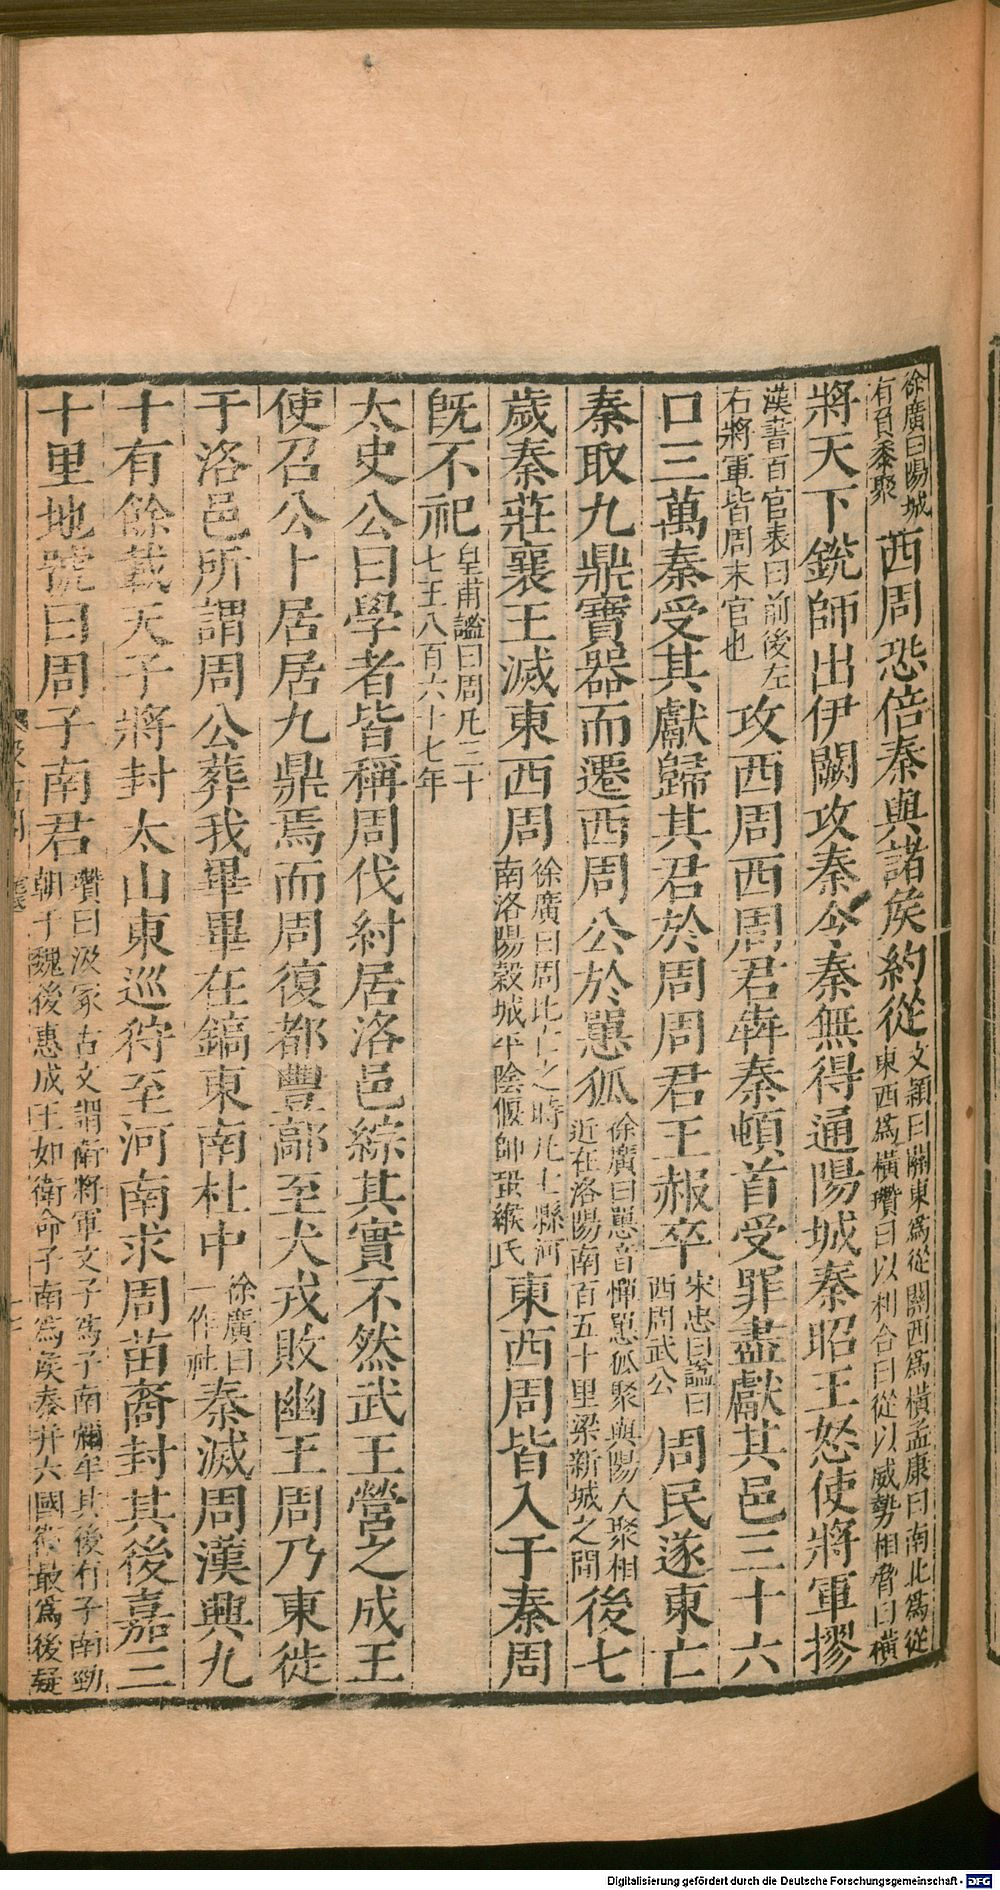 徐廣曰陽城
有負黍聚
西周恐倍秦與諸侯約從
文穎曰關東為從關西為橫孟康曰南北為從
東西為橫瓚曰以利合曰從以威勢相脅曰橫
將天下銳師出伊闕攻秦令秦無得通陽城秦昭王怒使將軍摎
漢書百官表曰前後左
右將軍皆周末官也
攻西周西周君犇秦頓首受罪盡獻其邑三十六
口三萬秦受其獻歸其君於周周君王赧卒
宋忠曰諡曰
西周武公
周民遂東亡
秦取九鼎寶器而遷西周公於㥯狐
徐廣曰㥯音憚㥯狐聚與陽人聚相
近在洛陽南百五十里梁新城之間
後七
歲秦莊襄王滅東西周
徐廣曰周比亡之時凡七縣河
南洛陽穀城平陰偃師鞏緱氏
東西周皆入于秦周
旣不祀
皇甫謐曰周凡三十
七王八百六十七年
太史公曰學者皆稱周伐紂居洛邑綜其實不然武王營之成王
使召公卜居居九鼎焉而周復都豐鄗至犬戎敗幽王周乃東徙
于洛邑所謂周公葬我畢畢在鎬東南杜中
徐廣曰
一作社
秦滅周漢興九
十有餘載天子將封太山東巡狩至河南求周苗裔封其後嘉三
十里地號曰周子南君
瓚曰汲冢古文謂衛將軍文子為子南彌牟其後有子南勁
朝于魏後惠成王如衛命子南為侯秦并六國衛最為後疑
Digitalisierung gefördert durch die Deutsche Forschungsgemeinschaft - DFG